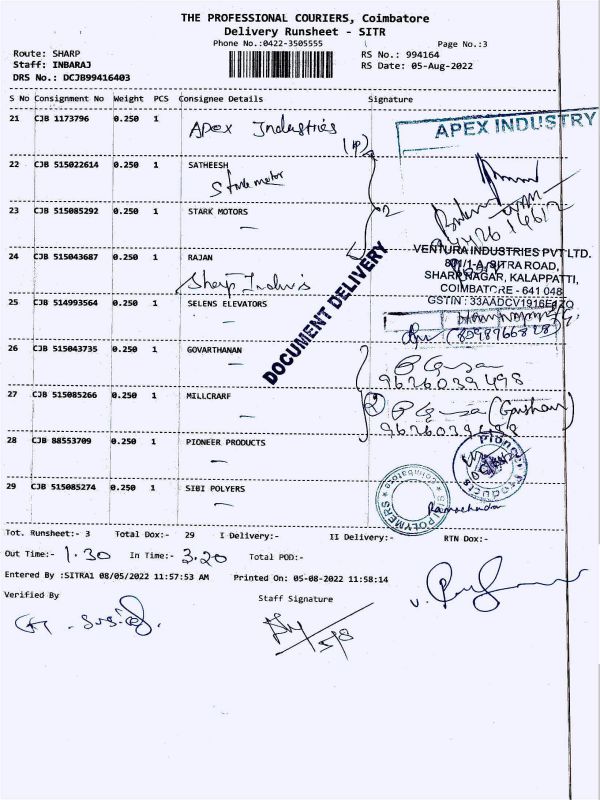 THE PROFESSIONAL COURIERS, Coimbatore
Delivery Runsheet - SITR
Phone No.:0422-3505555
Page No.:3
Route: SHARP
RS No.: 994164
Staff: INBARAJ
RS Date: 05-Aug-2022
DRS No.: DCJB99416403
S No Consignment No Weight PCS Consignee Details Signature
21 CJB 1173796 0.250 1 Apex Industries
APEX INDUSTRY
22 CJB 515022614 0.250 1 SATHEESH
Stark motor
23 CJB 515085292 0.250 1 STARK MOTORS
24 CJB 515043687 0.250 1 RAJAN
VENTURA INDUSTRIES PVT LTD.
871/1-A, SITRA ROAD,
SHARP NAGAR, KALAPPATTI,
COIMBATORE - 641 048
DOCUMENT DELIVERY
25 CJB 514993564 0.250 1 SELENS ELEVATORS
26 CJB 515043735 0.250 1 GOVARTHANAN
9626039498
27 CJB 515085266 0.250 1 MILLCRARF
28 CJB 88553709 0.250 1 PIONEER PRODUCTS
29 CJB 515085274 0.250 1 SIBI POLYERS
SIBI POLYMERS
Tot. Runsheet:- 3 Total Dox:- 29 I Delivery:- II Delivery:- RTN Dox:-
Out Time:- 1.30 In Time:- 3.20 Total POD:-
Entered By :SITRA1 08/05/2022 11:57:53 AM Printed On: 05-08-2022 11:58:14
Verified By Staff Signature
5/8